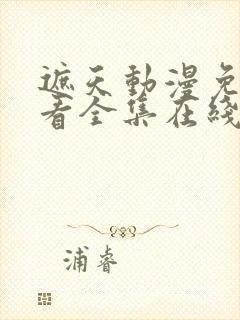 遮天動漫免
看全集在綫
浦睿